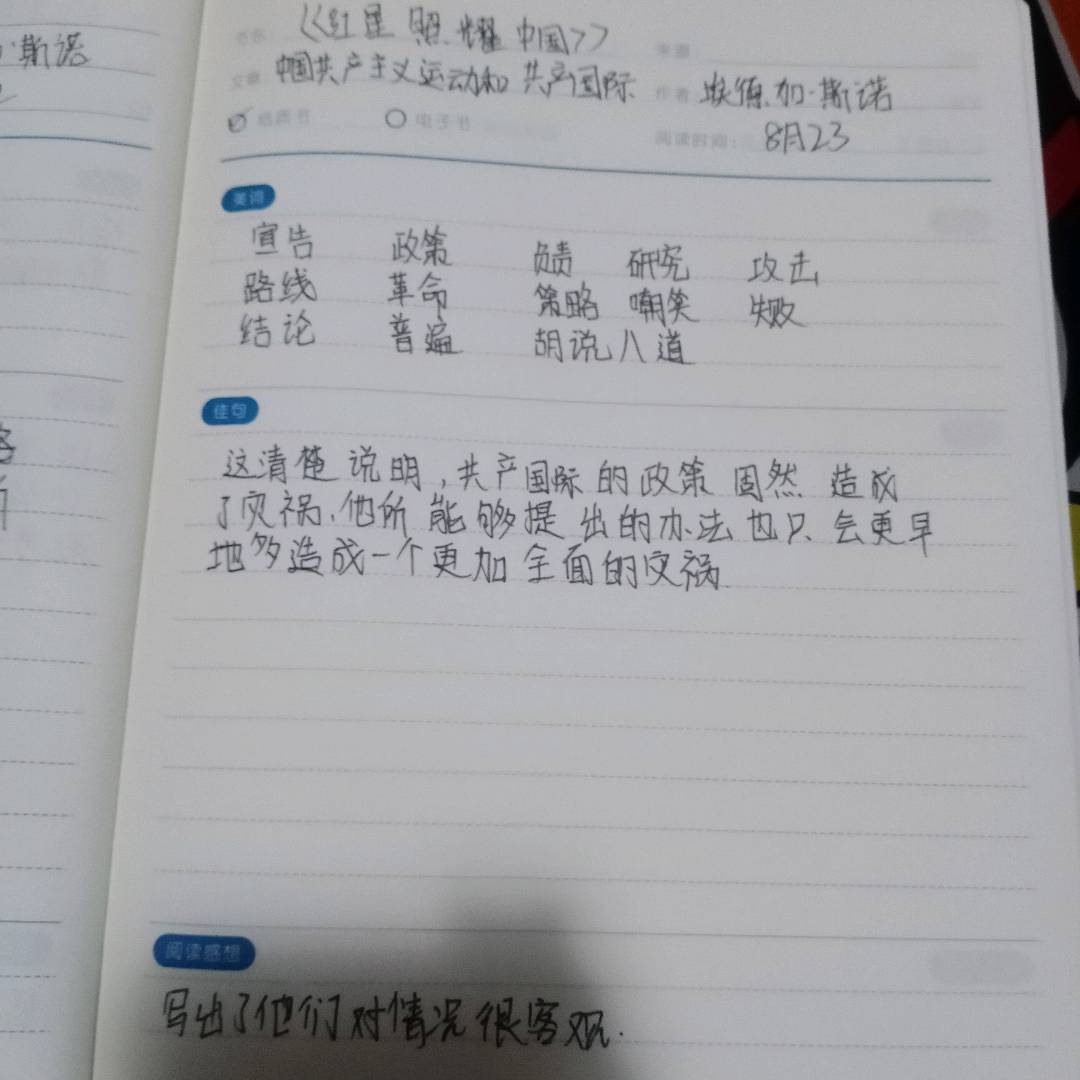 ·斯诺
书名：《红星照耀中国》
文章 中国共产主义运动和共产国际
作者 埃德加·斯诺
纸质书 电子书
阅读时间： 8月23
美词
宣告 政策 负责 研究 攻击
路线 革命 策略 嘲笑 失败
结论 普遍 胡说八道
佳句
这清楚说明，共产国际的政策固然造成
了灾祸、他所能够提出的办法也只会更早
地多造成一个更加全面的灾祸
阅读感想
写出了他们对情况很客观.